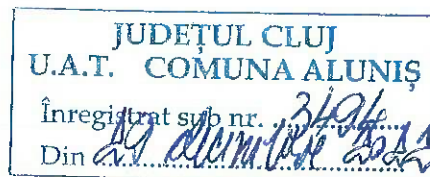 JUDEȚUL CLUJ
U.A.T. COMUNA ALUNIȘ
Înregistrat sub nr. 3494
Din 29 decembrie 2022